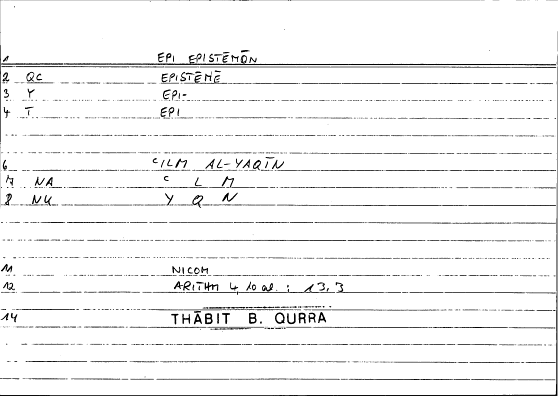 1 EPI EPISTĒMŌN
2 QC EPISTĒMĒ
3 Y EPI-
4 T EPI
6 ʿILM AL-YAQĪN
7 NA ʿ L M
8 NU Y Q N
11 NICOM
12 ARITHM 4, 10 al. : 13, 3
14 THĀBIT B. QURRA